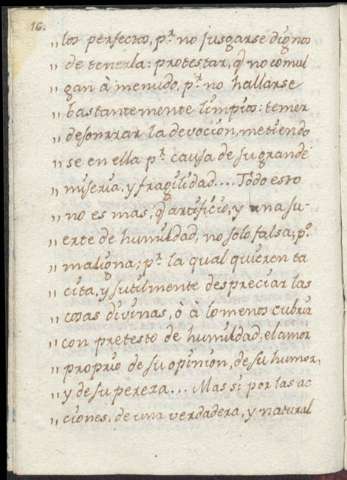 16.
,, los perfectos, p.r no jusgarse dignos
,, de tenerla: protestar, q.e no comul
,, gan à menudo, p.r no hallarse
,, bastantemente limpios: temer
,, desonrrar la devocion, metiendo
,, se en ella p.r causa de su grande
,, miseria, y fragilidad.... Todo esto
,, no es mas, q.e artificio, y una su-
,, erte de humildad, no solo, falsa, p.o
,, maligna; p.r la qual quieren ta
,, cita, y sutilmente despreciar las
,, cosas divinas, ò à lo menos cubrir
,, con pretesto de humildad, el amor
,, proprio de su opinion, de su humor,
,, y de su pereza... Mas si por las ac
,, ciones, de una verdadera, y natural